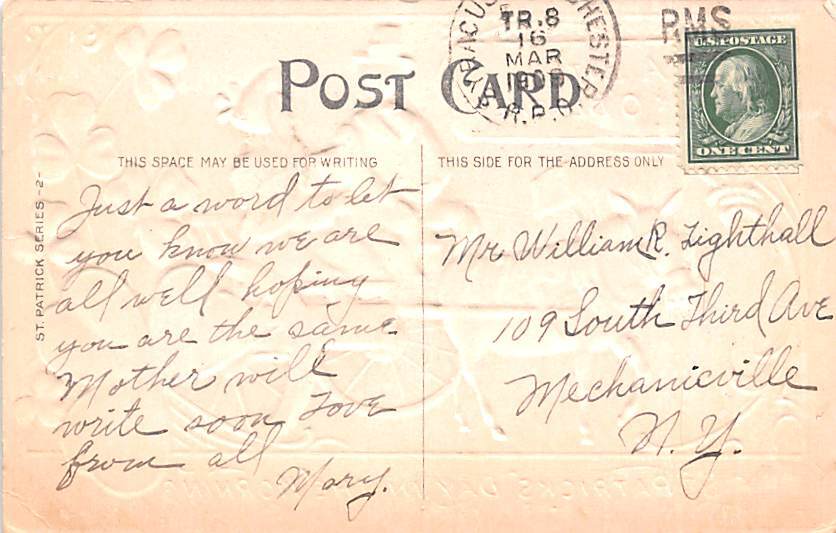 POST CARD
SYRACUSE ROCHESTER
TR. 8
16
MAR
R.P.O.
RMS
U.S. POSTAGE
ONE CENT
THIS SPACE MAY BE USED FOR WRITING
THIS SIDE FOR THE ADDRESS ONLY
ST. PATRICK SERIES -2-
Just a word to let
you know we are
all well hoping
you are the same
Mother will
write soon Love
from all
Mary.
Mr William R. Lighthall
109 South Third Ave
Mechanicville
N. Y.